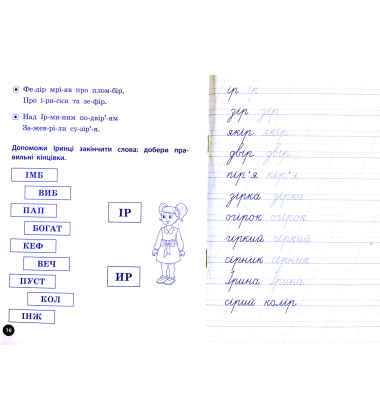 Фе-дір мрі-яв про плом-бір,
Про і-ри-ски та зе-фір.
Над Ір-ми-ним по-двір'-ям
За-жев-рі-ли су-зір'-я.
Допоможи Іринці закінчити слова: добери пра-
вильні кінцівки.
ІМБ
ВИБ
ПАП
БОГАТ
КЕФ
ВЕЧ
ПУСТ
КОЛ
ІНЖ
ІР
ИР
16
ір ір
зір зір
якір якір
двір двір
пір'я пір'я
зірка зірка
огірок огірок
гіркий гіркий
сірник сірник
Ірина Ірина
сірий колір